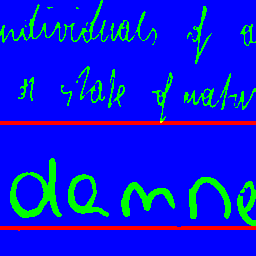 individuals of a
in state of natur
damne